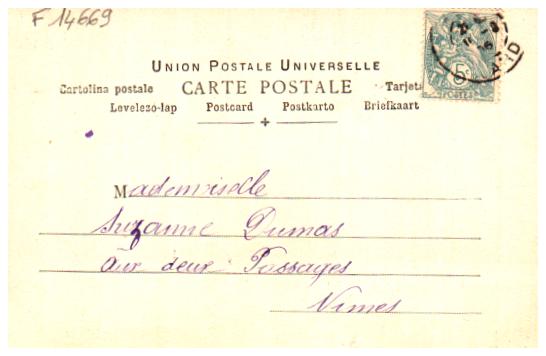 F 14669
UNION POSTALE UNIVERSELLE
Cartolina postale CARTE POSTALE Tarjeta
Levelezo-lap Postcard Postkarto Briefkaart
Mademoiselle
Suzanne Dumas
aux deux Passages
Nimes
5
POSTES